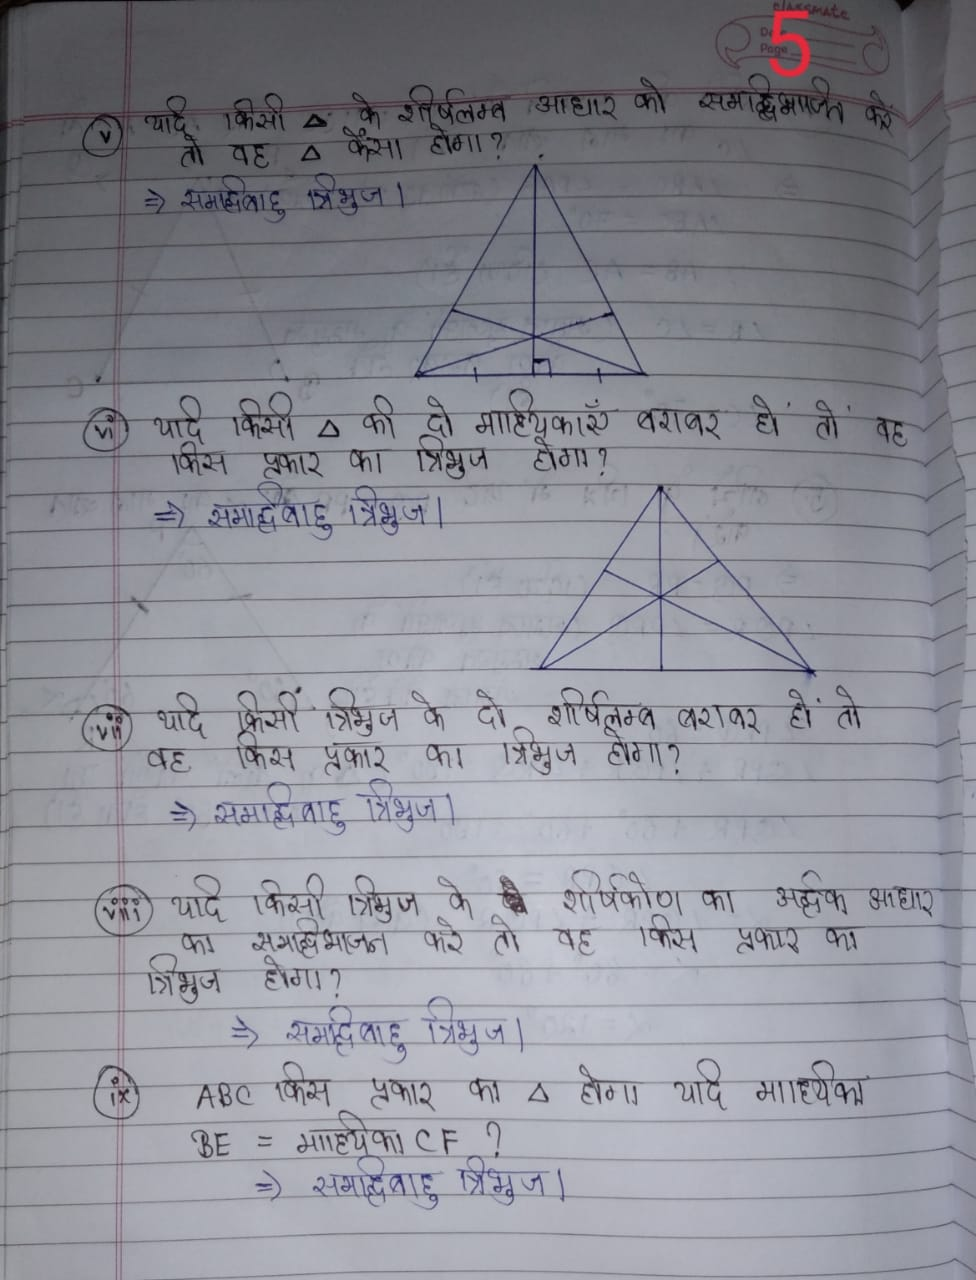 classmate
Date
Page
5
(v) यदि किसी △ के शीर्षलम्ब आधार को समद्विभाजित करे
तो वह △ कैसा होगा?
⇒ समद्विबाहु त्रिभुज।
(vi) यदि किसी △ की दो माध्यिकाएँ बराबर हों तो वह
किस प्रकार का त्रिभुज होगा?
⇒ समद्विबाहु त्रिभुज।
(vii) यदि किसी त्रिभुज के दो शीर्षलम्ब बराबर हों तो
वह किस प्रकार का त्रिभुज होगा?
⇒ समद्विबाहु त्रिभुज।
(viii) यदि किसी त्रिभुज के शीर्षकोण का अर्द्धक आधार
का समद्विभाजन करे तो वह किस प्रकार का
त्रिभुज होगा?
⇒ समद्विबाहु त्रिभुज।
(ix) ABC किस प्रकार का △ होगा यदि माध्यिका
BE = माध्यिका CF ?
⇒ समद्विबाहु त्रिभुज।